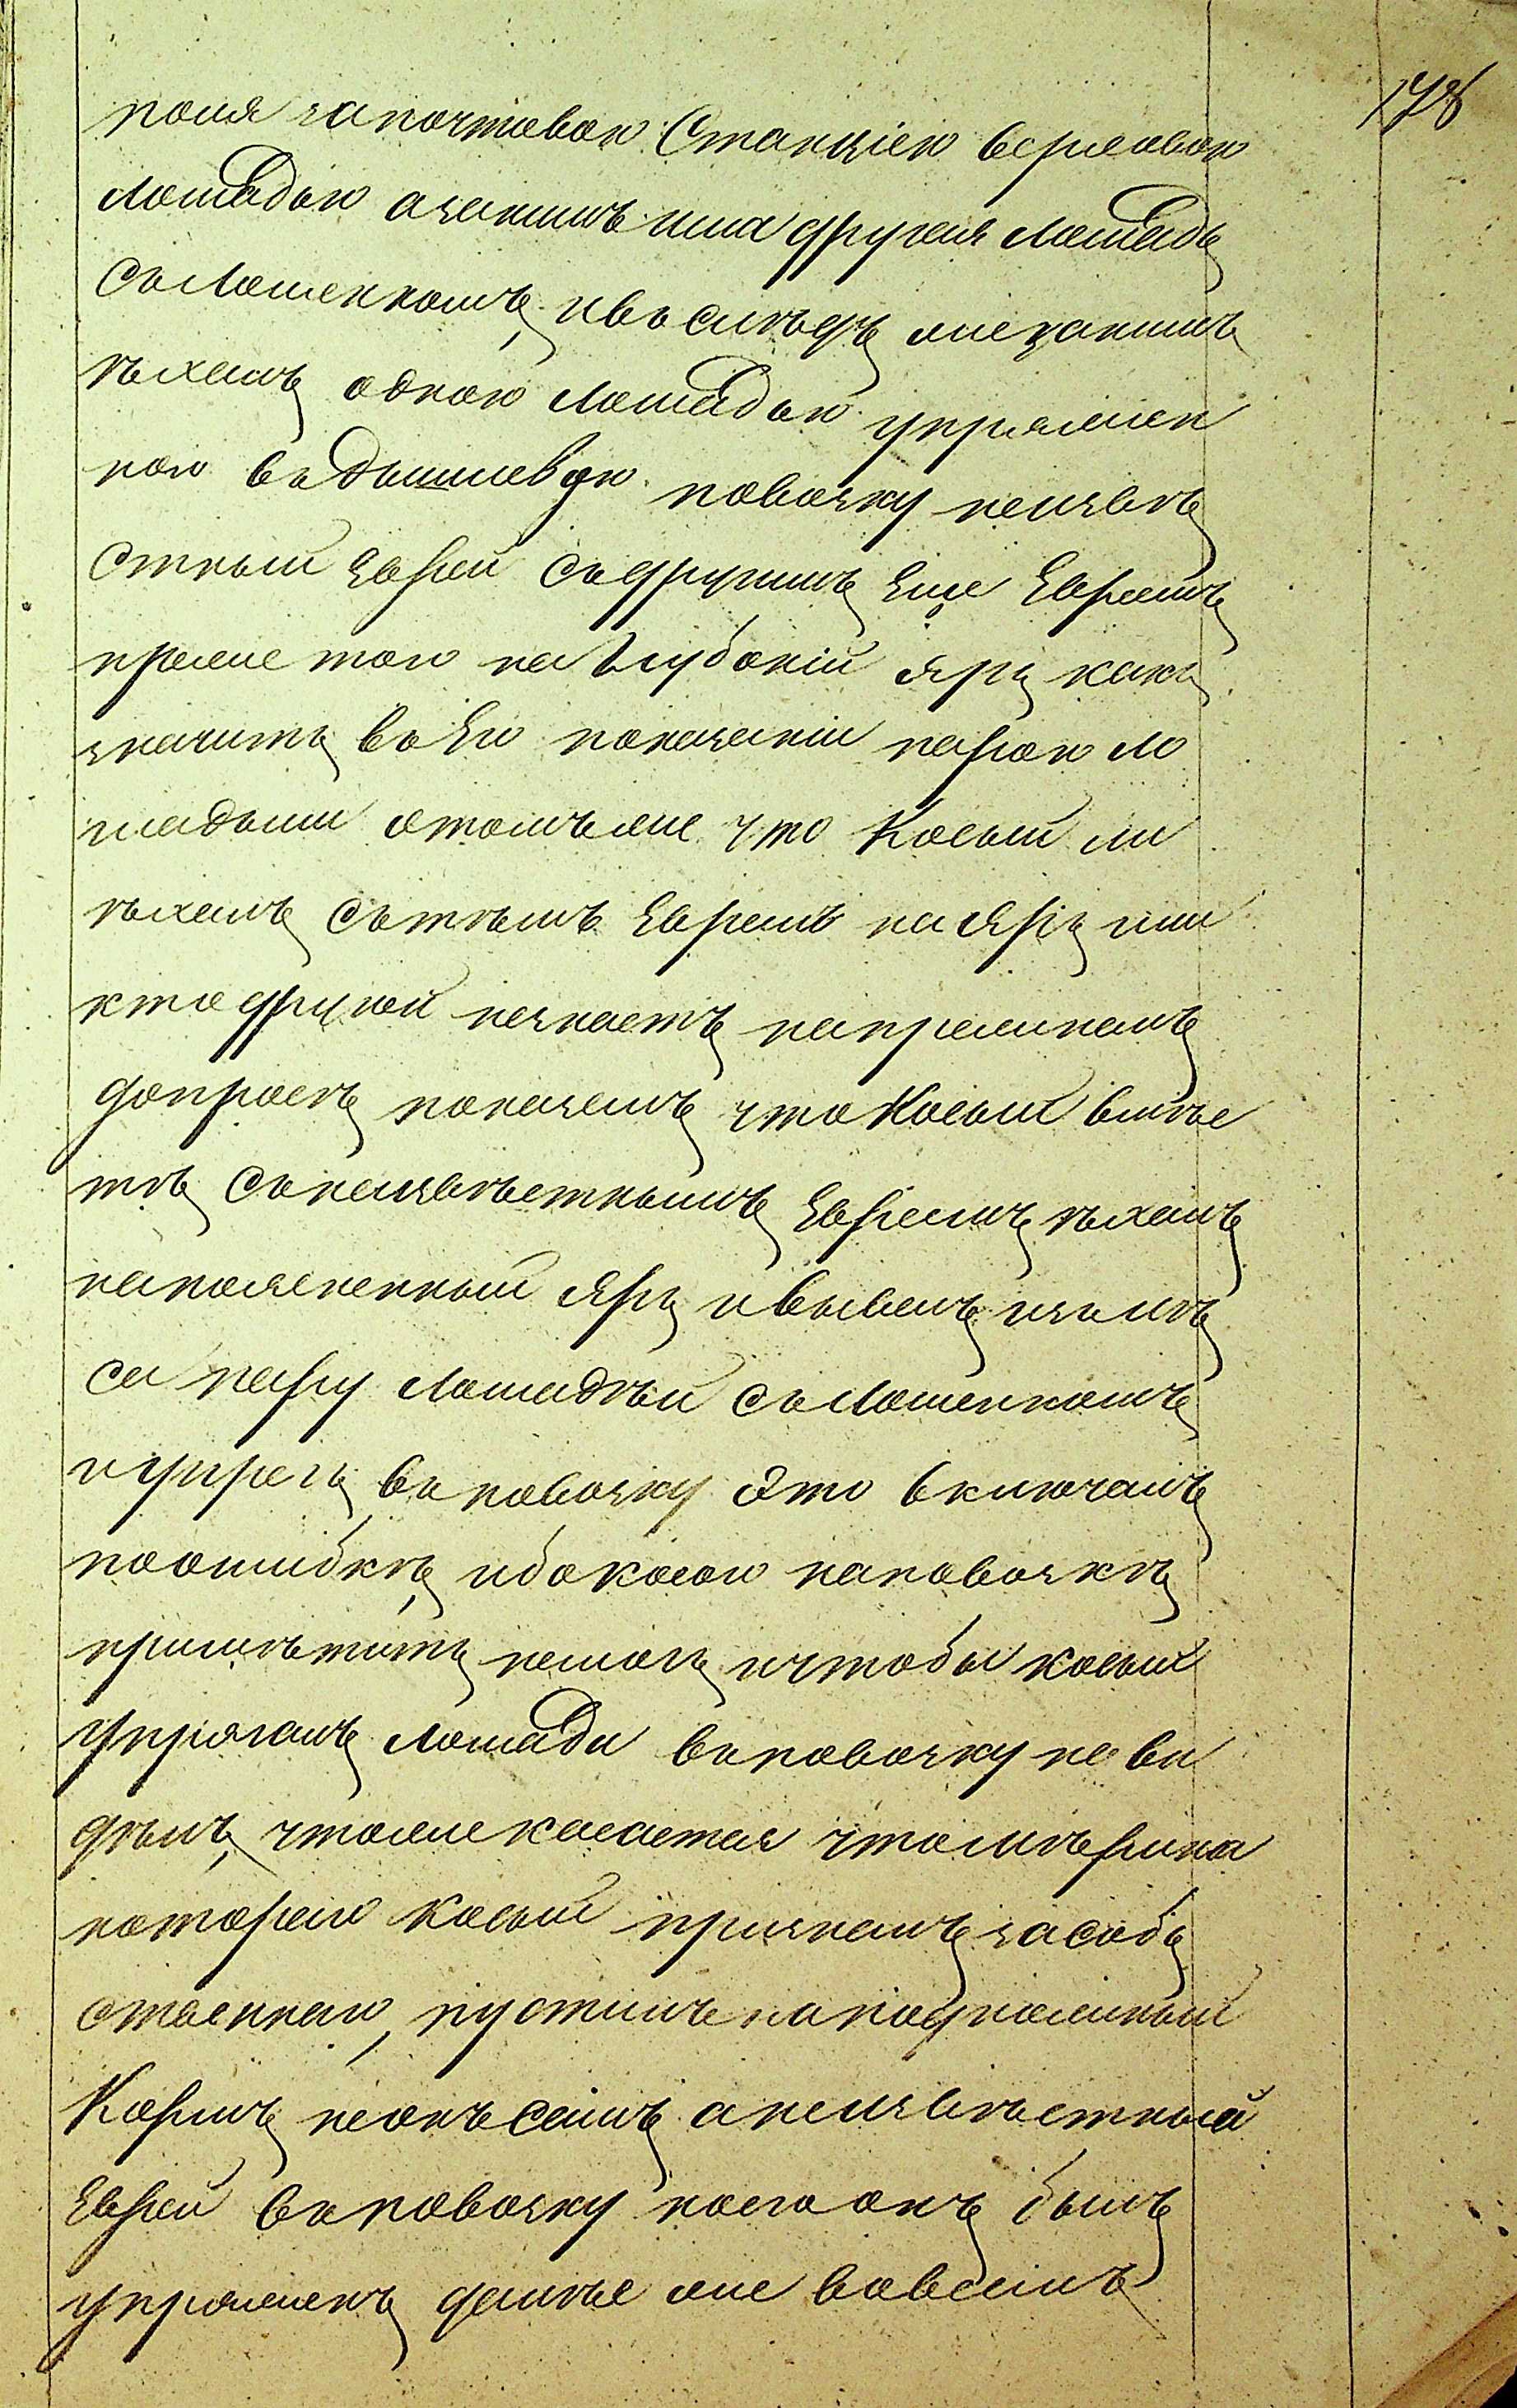 178
поля започтовою Станціею верховою
лошадью азанимъ шла другая лошадь
съ лошенкомъ, ивъ слѣдъ жиезанимъ
ѣхалъ одною лошадью упряжен
ною въ дышлевую повозку неизвѣ
стный Еврей съ другимъ Еще Евреемъ
кромѣ того на Глубокій Яръ какъ
значитъ въ Его показаніи парою ло
шадьми отомъже что Косый ли
ѣхалъ сътѣмъ Евреемъ на Яръ или
ктодругой незнаетъ напрежнемъ
допросѣ показалъ что Косый вмѣс
тѣ съ неизвѣстнымъ Евреемъ ѣхалъ
на поясненный Яръ ивывелъ изълѣ
са пару лошадѣй съ лошенкомъ
иупрегъ въ повозку Это включалъ
по ошибкѣ, ибо косого на повозкѣ
примѣтить немогъ ичтобы косый
упрягалъ лошади въ повозку не ви
дѣлъ, чтоже касается что мѣрина
котораго Косый призналъ за собь
ственнаго, пустилъ на подножный
Кормъ не онъ самъ а неизвѣстный
Еврей въ повозку коего онъ былъ
упряженъ далѣе же вовсемъ